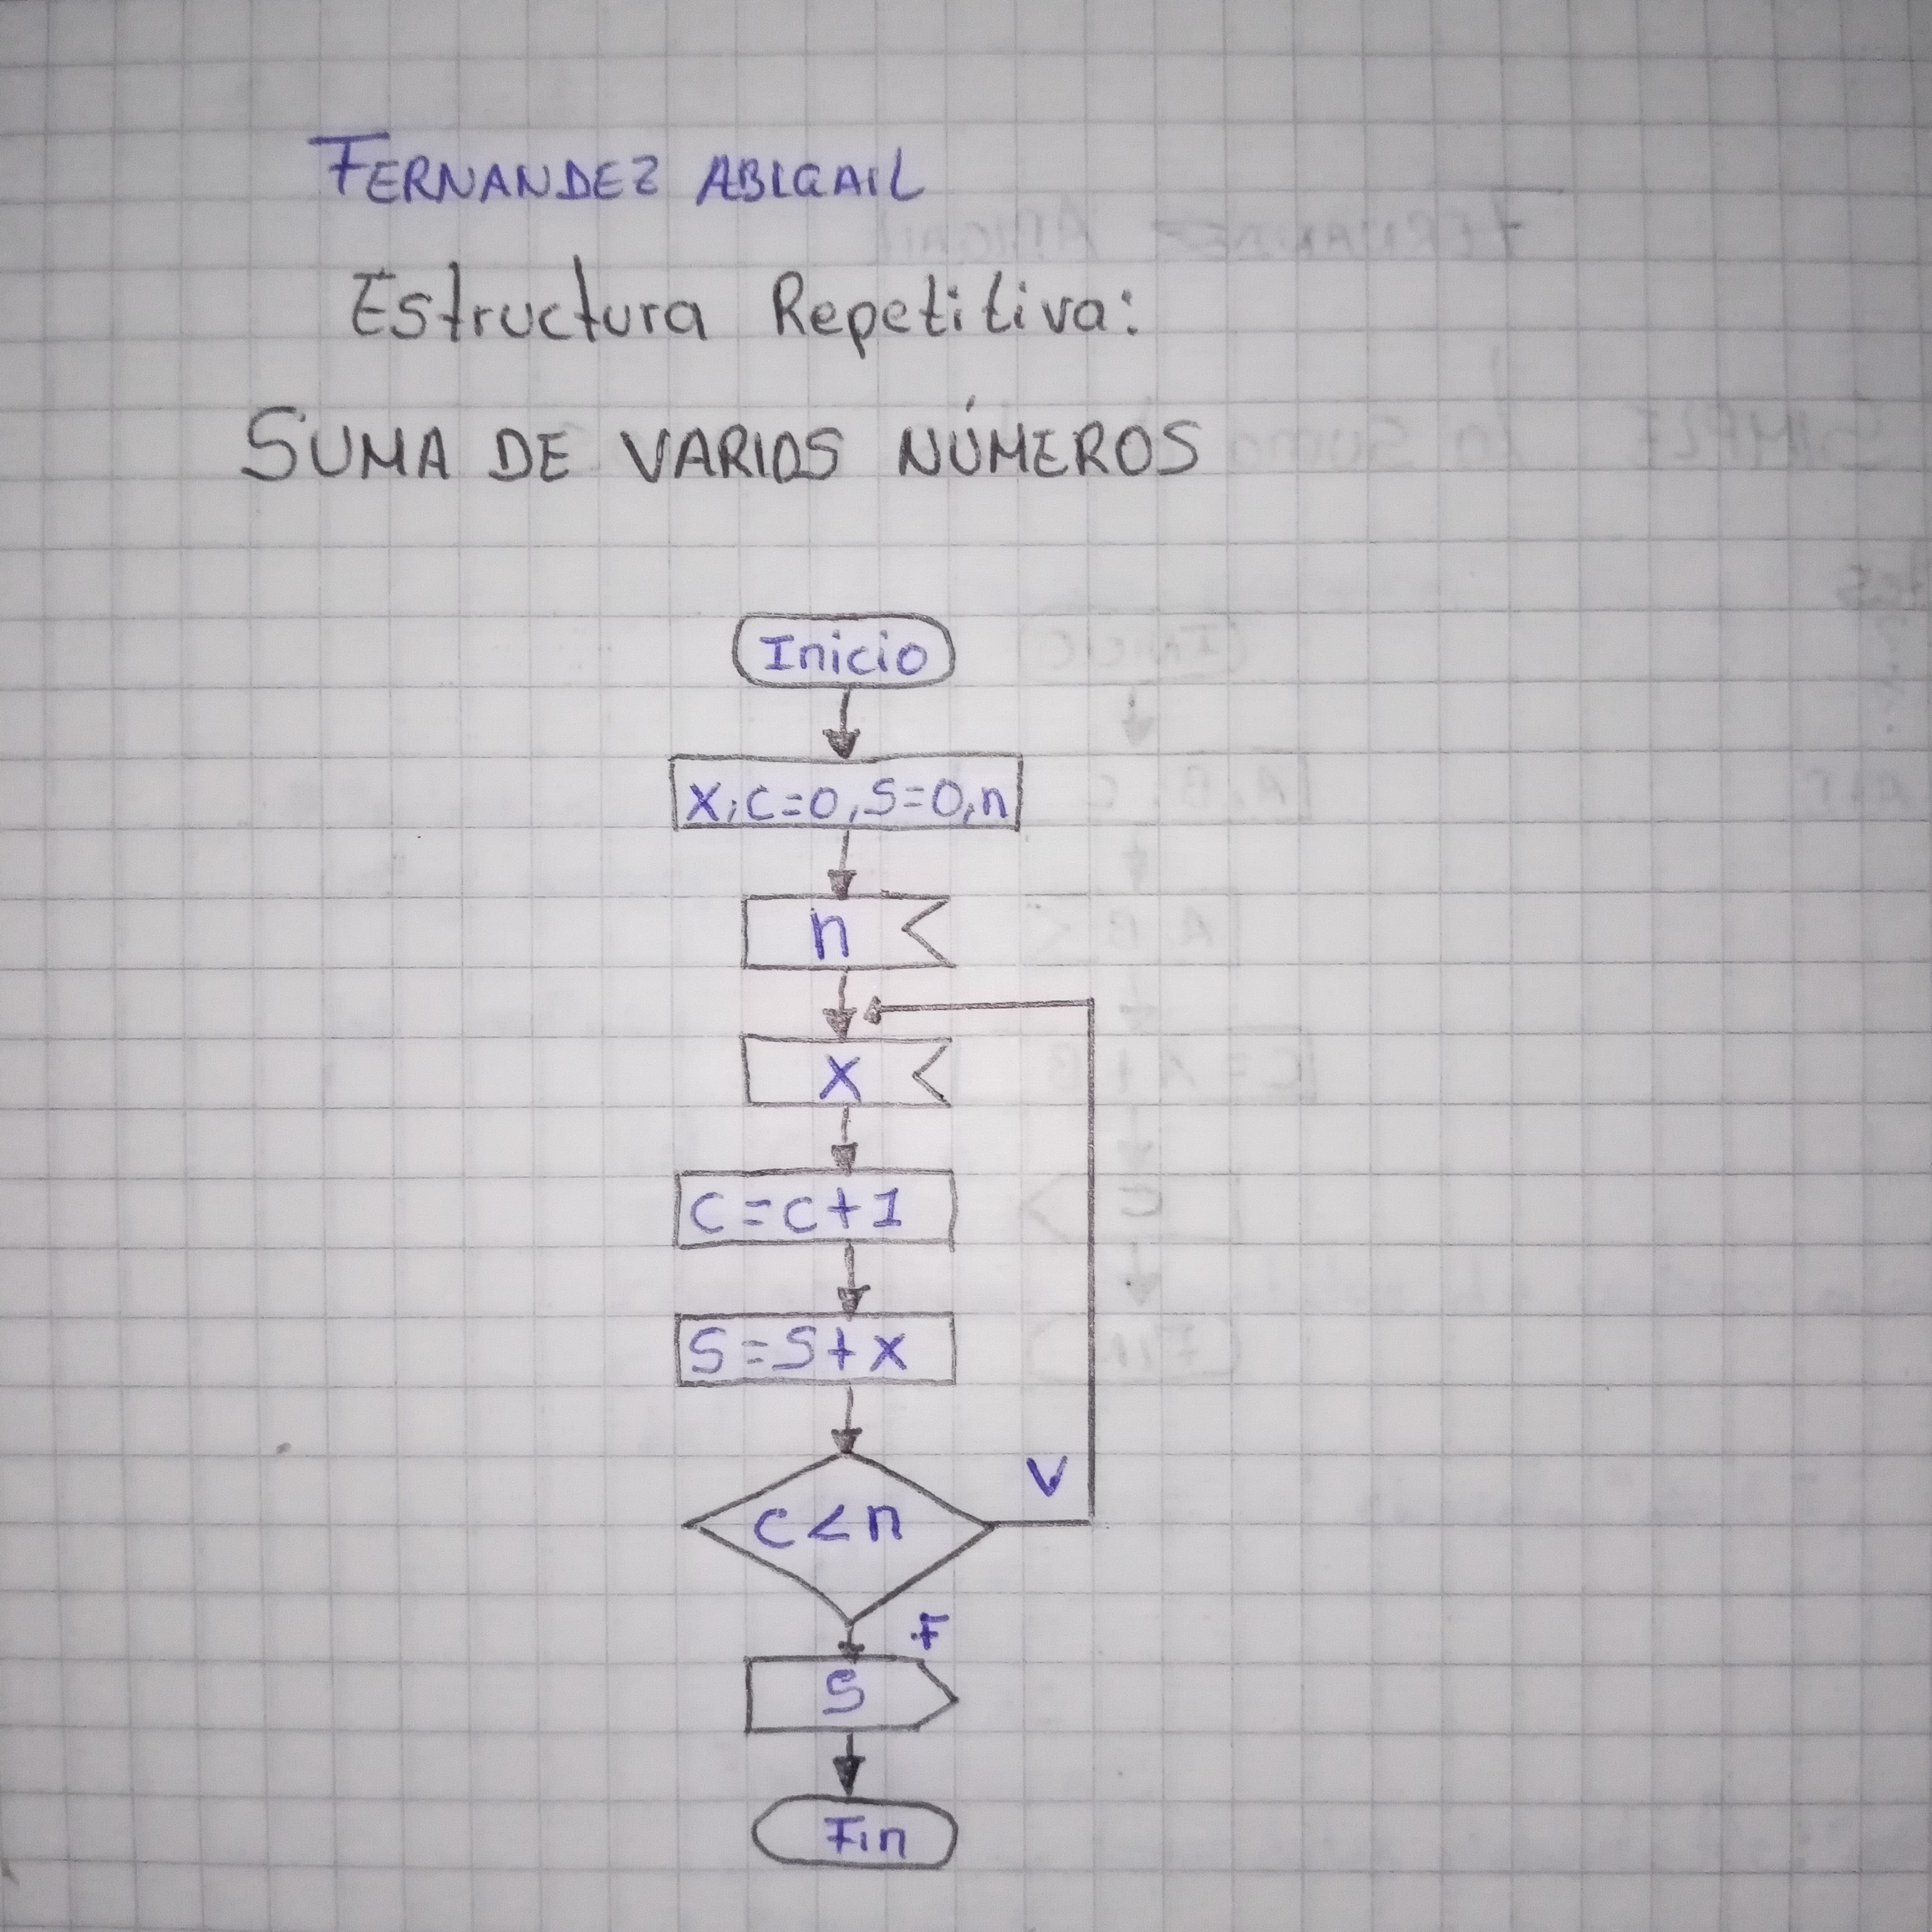 FERNANDEZ ABIGAIL
Estructura Repetitiva:
SUMA DE VARIOS NÚMEROS
Inicio
X, C=0, S=0, n
n
X
C=C+1
S=S+X
C<n
V
F
S
Fin